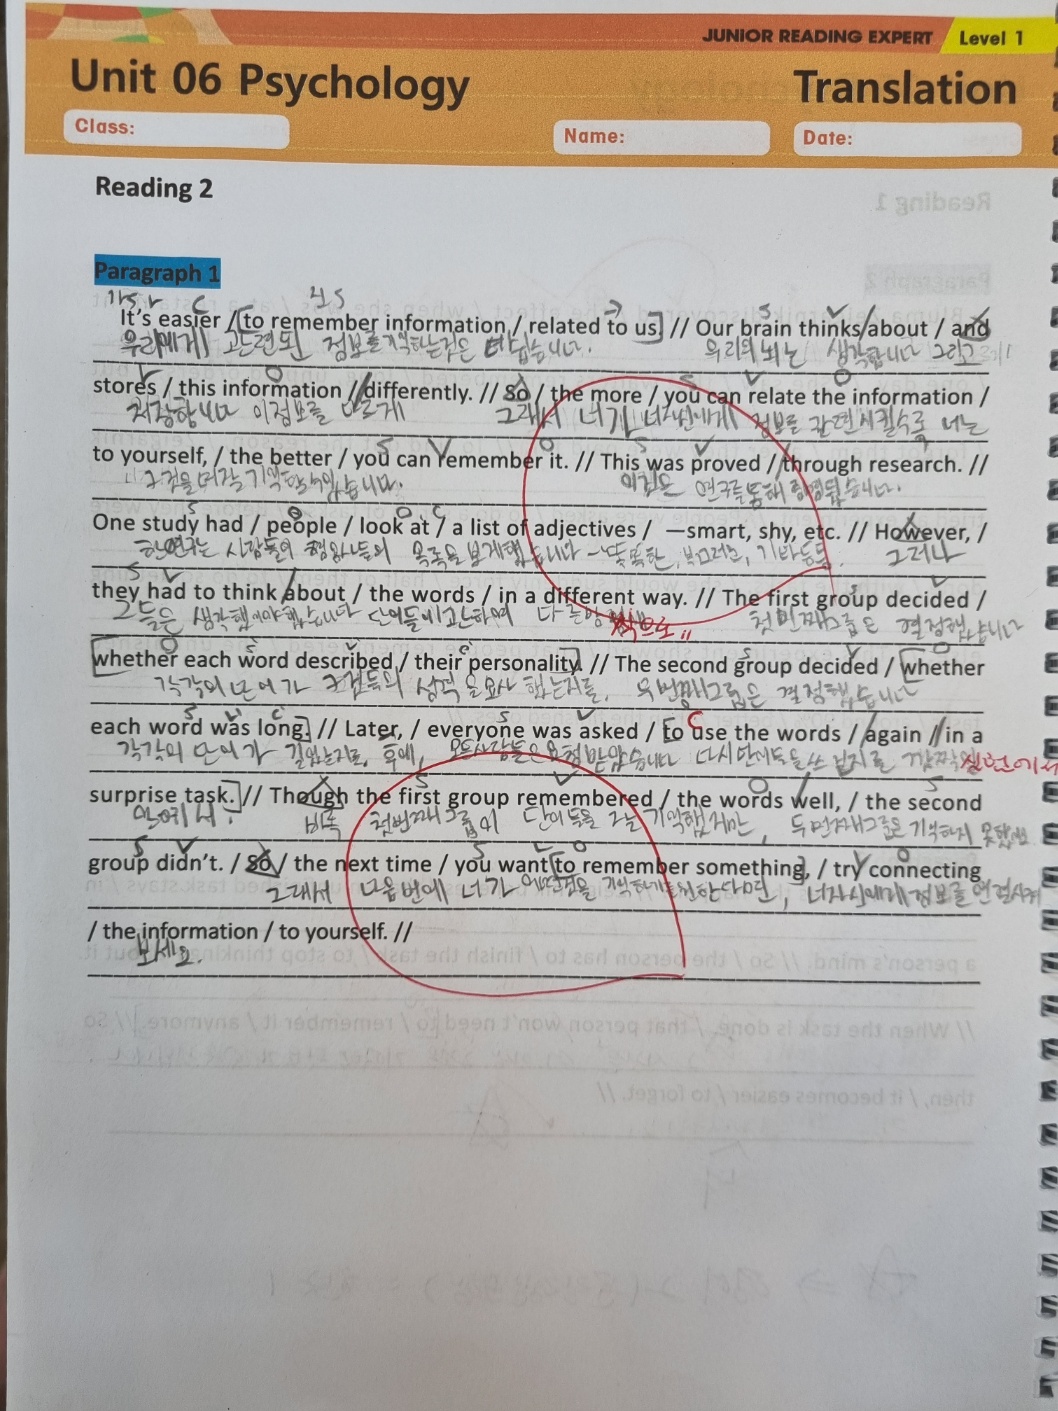 JUNIOR READING EXPERT Level 1
Unit 06 Psychology Translation
Class: Name: Date:
Reading 2
Paragraph 1
가S V C 진S
It's easier / [to remember information / related to us] // Our brain thinks/about / and
우리에게 관련된 정보를 기억하는것은 더 쉽습니다. 우리의 뇌는 생각합니다 그리고
stores / this information // differently. // So / the more / you can relate the information /
저장합니다 이정보를 다르게 그래서 너가 너자신에게 정보를 관련시킬수록 너는
to yourself, / the better / you can remember it. // This was proved // through research. //
그것을 더 잘 기억할 수 있습니다. 이것은 연구를 통해 증명됬습니다.
One study had / people / look at / a list of adjectives / —smart, shy, etc. // However, /
한연구는 사람들의 형용사들의 목록을 보게했습니다 - 똑똑한, 부끄러운, 기타등등. 그러나
they had to think about / the words / in a different way. // The first group decided /
그들은 생각했어야했습니다 단어들에 관하여 다른방식으로 첫번째그룹은 결정했습니다
[whether each word described / their personality]. // The second group decided / [whether
각각의 단어가 그것들의 성격을 묘사했는지를. 두번째그룹은 결정했습니다
each word was long.] // Later, / everyone was asked / [to use the words / again // in a
각각의 단어가 길었는지를. 후에, 모든사람들은 요청받았습니다 다시 단어들을 쓰 깜짝 실현에서
surprise task.] // Though the first group remembered / the words well, / the second
비록 첫번째그룹이 단어들을 기억했지만, 두번째그룹은 기억하지 못했
group didn't. / So / the next time / you want [to remember something], / try connecting
그래서 다음번에 너가 어떤것을 기억하기를 원한다면, 너자신에게 정보를 연결시켜
/ the information / to yourself. //
보세요.